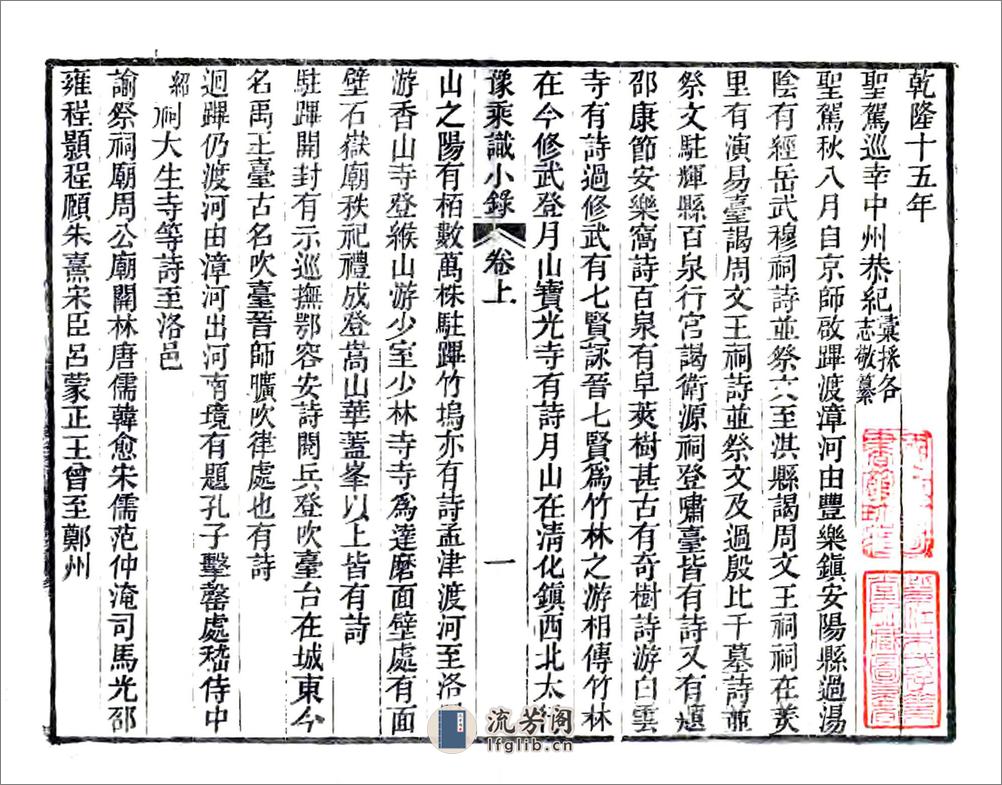 乾隆十五年
聖駕巡幸中州恭紀彙採各志敬纂
聖駕秋八月自京師啟蹕渡漳河由豐樂鎮安陽縣過湯
陰有經岳武穆祠詩並祭六至淇縣謁周文王祠祠在羑
里有演易臺謁周文王祠詩並祭文及過殷比干墓詩並
祭文駐輝縣百泉行宮謁衛源祠登嘯臺皆有詩又有題
邵康節安樂窩詩百泉有皁莢樹甚古有奇樹詩游白雲
寺有詩過修武有七賢詠晉七賢為竹林之游相傳竹林
在今修武登月山寶光寺有詩月山在清化鎮西北太行
豫乘識小錄 卷上 一
山之陽有栢數萬株駐蹕竹塢亦有詩孟津渡河至洛
游香山寺登緱山游少室少林寺寺為達磨面壁處有面
壁石嶽廟秩祀禮成登嵩山華蓋峯以上皆有詩
駐蹕開封有示巡撫鄂容安詩閱兵登吹臺台在城東今
名禹王臺古名吹臺晉師曠吹律處也有詩
迴蹕仍渡河由漳河出河南境有題孔子擊磬處嵇侍中
紹祠大生寺等詩至洛邑
諭祭祠廟周公廟關林唐儒韓愈宋儒范仲淹司馬光邵
雍程顥程頤朱熹宋臣呂蒙正王曾至鄭州
流芳阁
lfglib.cn